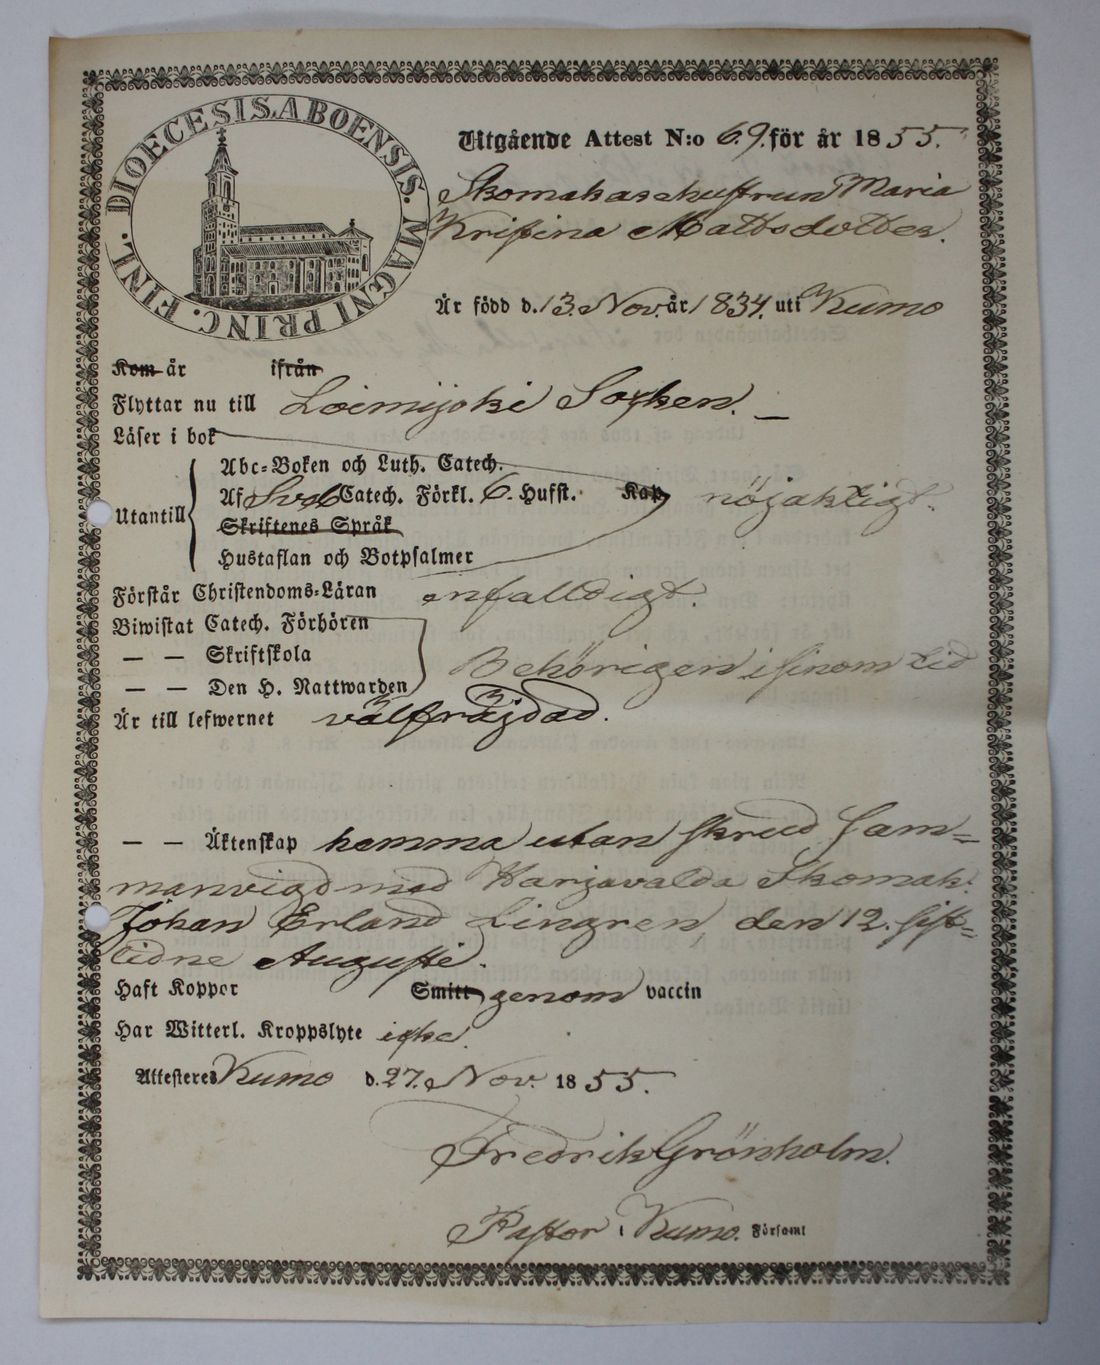 DIOECESIS.ABOENSIS. MAGNI PRINC. FINL.
Utgående Attest N:o 69. för år 1855.
Skomakarehustrun Maria
Kristina Mattsdotter.
Är född d. 13. Nov. år 1834. uti Kumo
Kom år ifrån
Flyttar nu till Loimijoki Socken.
Läser i bok
Abc-Boken och Luth. Catech.
Utantill Af Sveb Catech. Förkl. 6. Hufst. Kap nöjaktigt.
Skriftenes Språk
Hustaflan och Botpsalmer
Förstår Christendoms-Läran enfalldigt.
Biwistat Catech. Förhören
— — Skriftskola Behörigen i sinom tid
— — Den H. Nattwarden
Är till lefwernet välfräjdad.
— — Äktenskap hemma utan skrud sam=
manvigd med Harjavalda Skomak.
Johan Erland Lingren, den 12. sist=
lidne Augusti.
Haft Koppor Smitt genom vaccin
Har Witterl. Kroppslyte icke.
Attesteres Kumo d. 27. Nov. 1855.
Fredrik Grönholm.
Pastor i Kumo. Församl